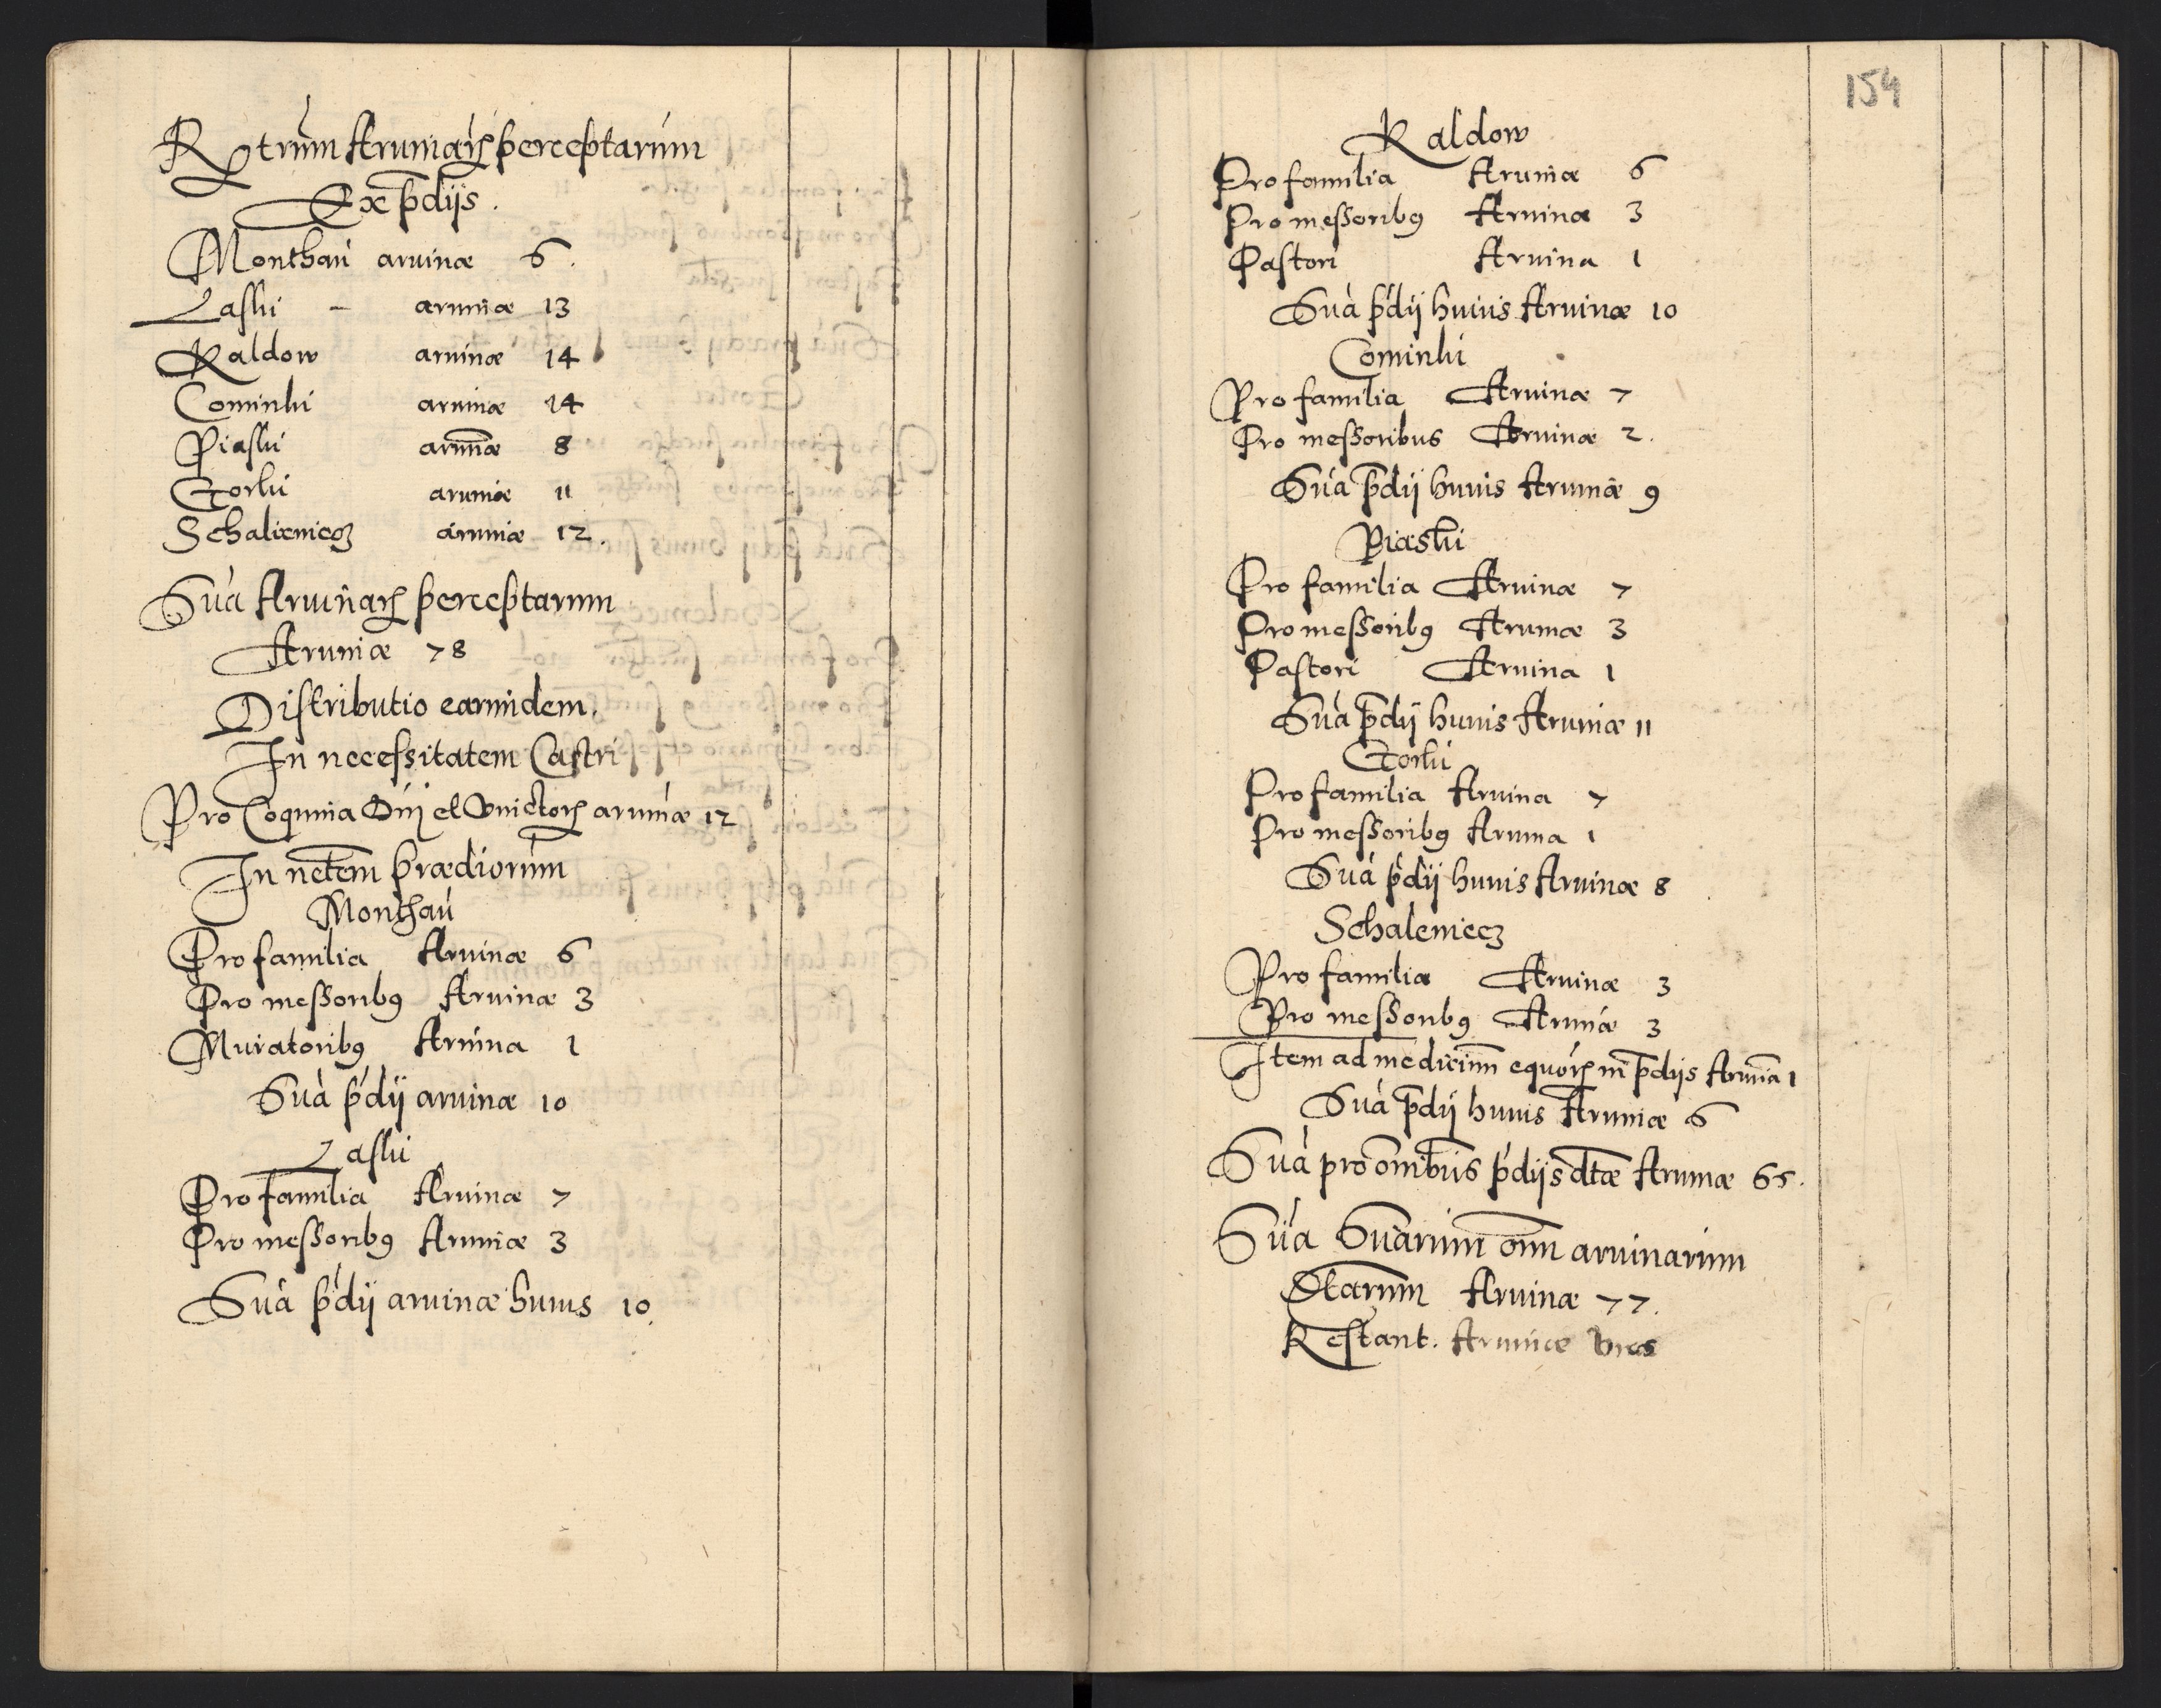 Rgtrum Aruinarꝝ perceptarum
Ex p̄dijs.
Monthaú aruinæ 6.
Laski – aruinæ 13
Kaldow aruinæ 14
Cominki aruinæ 14
Piaski aruinæ 8
Gorki aruinæ 11
Schalienicz aruinæ 12.
Sua Aruinarꝝ perceptarum
Aruinæ 78
Distributio earundem.
In necessitatem Castri
Pro Coquina Dnj et Vnictorꝝ aruinæ 12
In nctem prædiorum
Monthaú
Pro familia Aruinæ 6
Pro messoribꝰ Aruinæ 3
Muratoribꝰ Aruina 1
Sua p̄dij aruinæ 10
Laski
Pro familia Aruinæ 7
Pro messoribꝰ Aruinæ 3
Sua p̄dij aruinæ huius 10.
154
Kaldow
Pro familia Aruinæ 6
Pro messoribꝰ Aruinæ 3
Pastori Aruina 1
Sua p̄dij huius Aruinæ 10
Cominki
Pro familia Aruinæ 7
Pro messoribus Aruinæ 2.
Sua p̄dij huius Aruinæ 9
Piaski
Pro familia Aruinæ 7
Pro messoribꝰ Aruinæ 3
Pastori Aruina 1
Sua p̄dij huius Aruinæ 11
Gorki
Pro familia Aruina 7
Pro messoribꝰ Aruina 1
Sua p̄dij huius Aruinæ 8
Schaleniecz
Pro familia Aruinæ 3
Pro messoribꝰ Aruinæ 3
Item ad medicinm equorꝝ in p̄dijs Aruina 1
Sua p̄dij huius Aruinæ 6
Sua pro omnibus p̄dijs dtæ Aruinæ 65.
Sua Suarum oim aruinarum
Dtarum Aruinæ 77.
Restant. Aruinæ